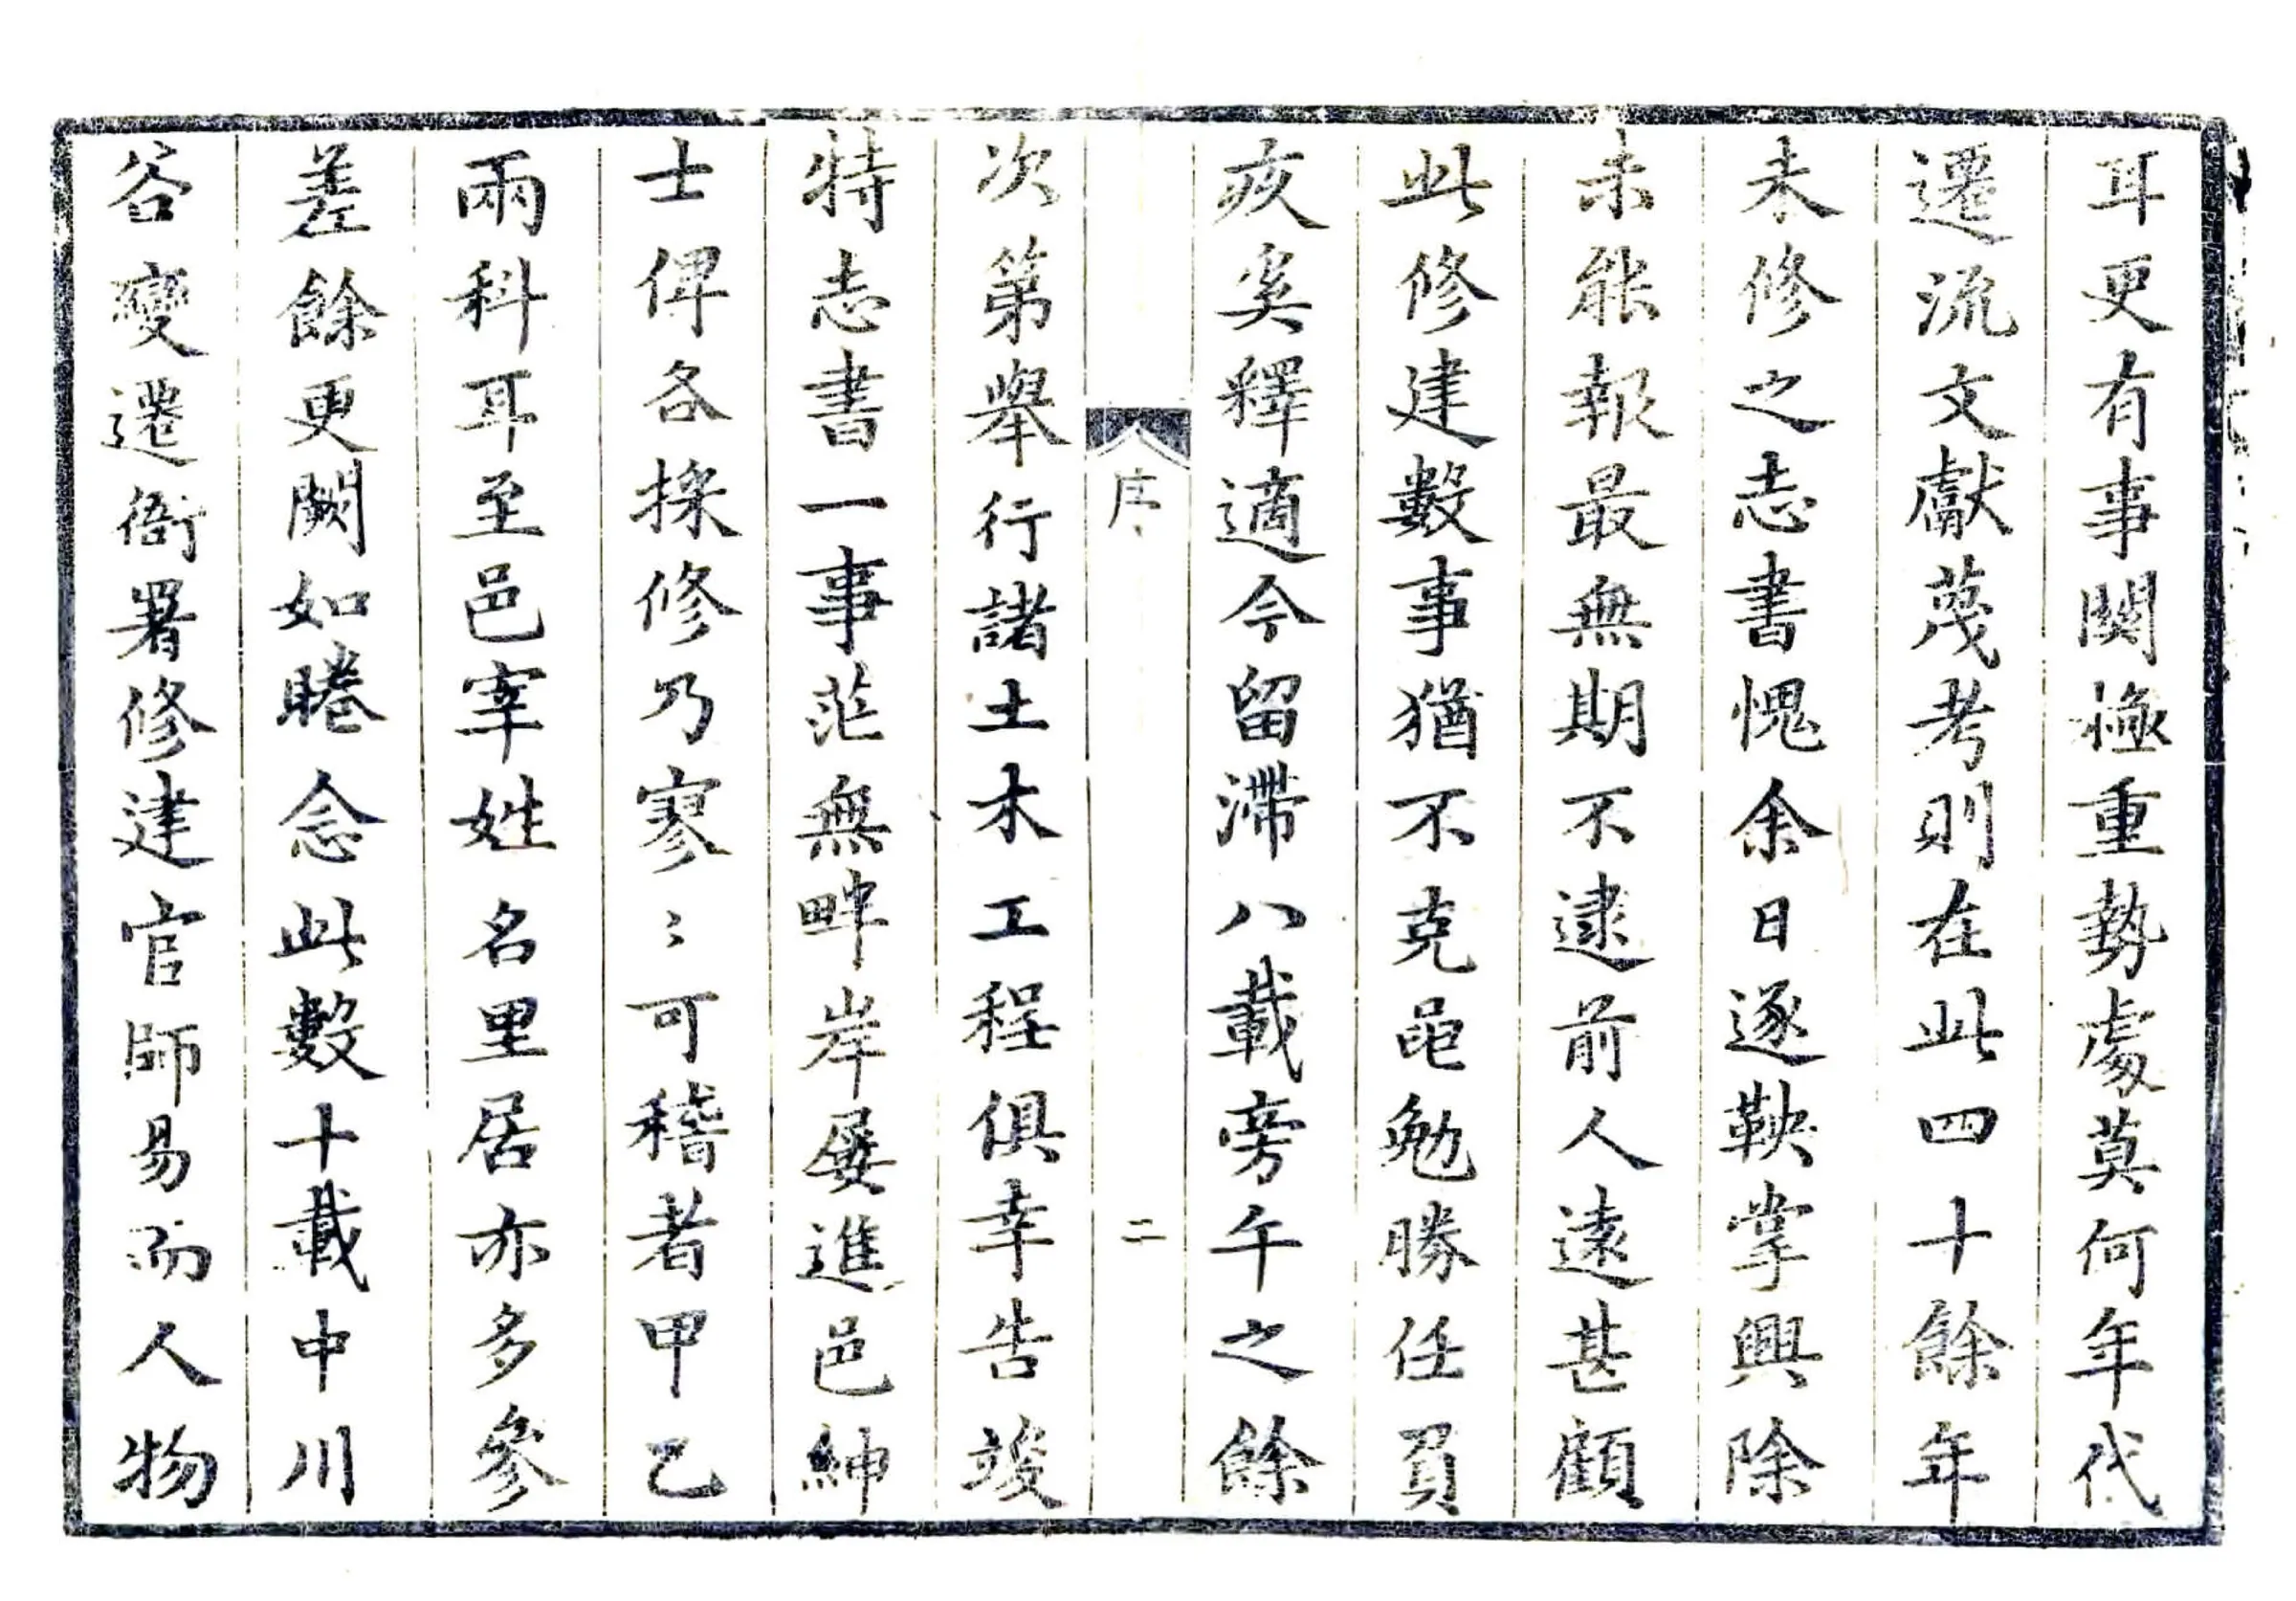 耳更有事関極重勢處莫何年代
遷流文獻蔑考則在此四十餘年
未修之志書愧余日逐鞅掌興除
未能報最無期不逮前人遠甚顧
此修建數事猶不克黽勉勝任負
疚奚釋適今留滯八載旁午之餘
序
二
次第舉行諸土木工程俱幸告竣
特志書一事茫無畔岸屡進邑紳
士俾各採修乃寥〻可稽者甲乙
兩科耳至邑宰姓名里居亦多參
差餘更闕如睠念此數十載中川
谷變遷衙署修建官師易而人物